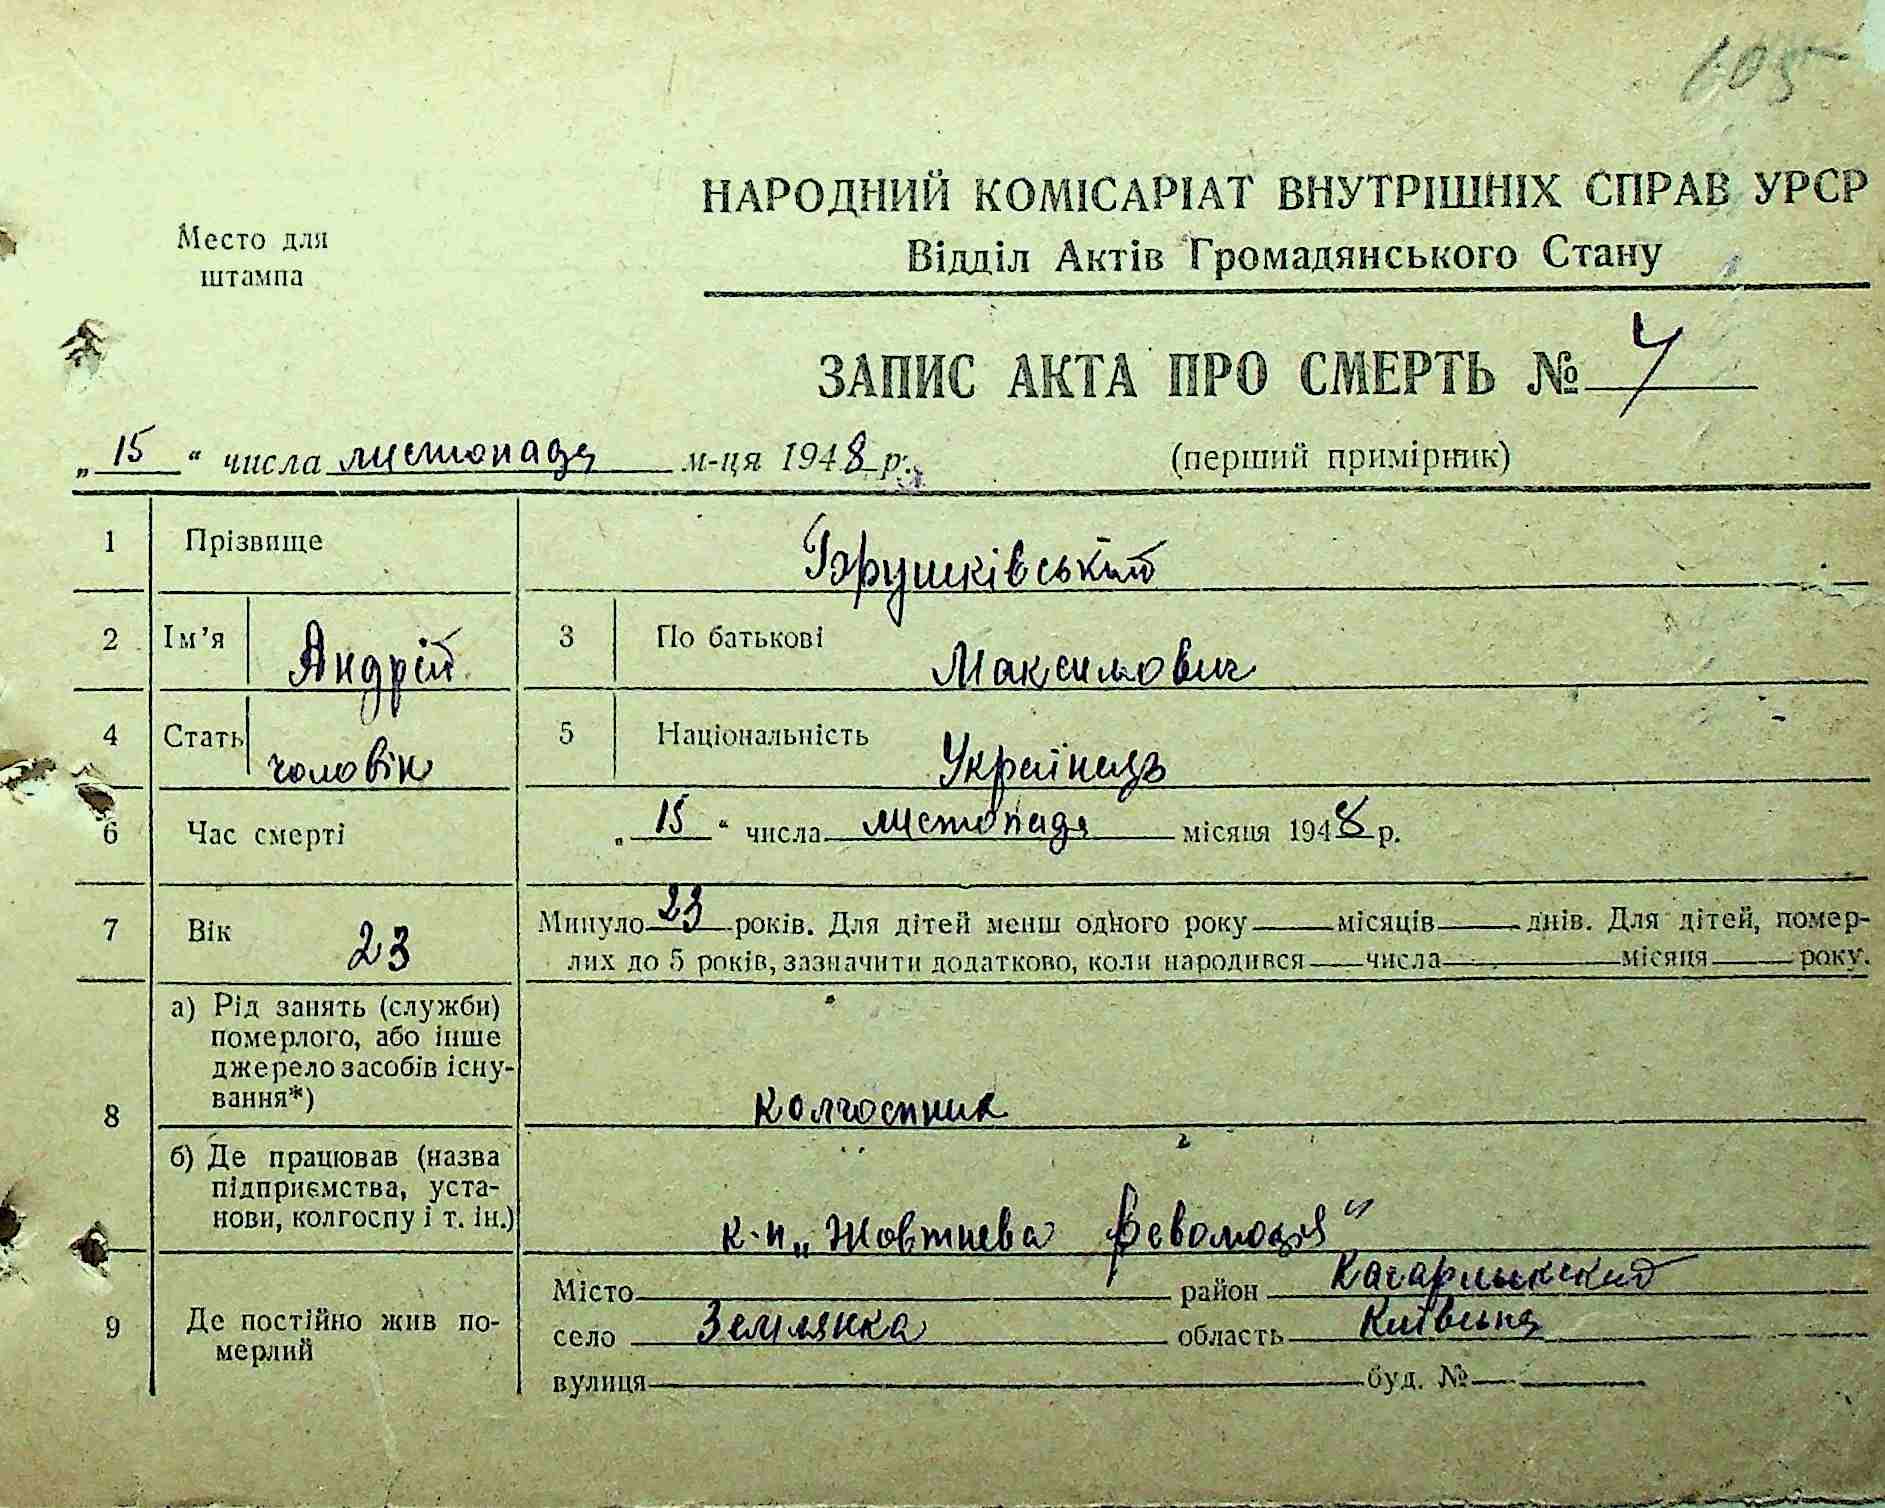 605
НАРОДНИЙ КОМІСАРІАТ ВНУТРІШНІХ СПРАВ УРСР
Место для
штампа
Відділ Актів Громадянського Стану
ЗАПИС АКТА ПРО СМЕРТЬ № 7
„15“ числа листопада м-ця 1948 р. (перший примірник)
1 Прізвище Грушківський
2 Ім'я Андрій 3 По батькові Максимович
4 Стать чоловік 5 Національність Українець
6 Час смерті „15“ числа листопада місяця 1948 р.
7 Вік 23 Минуло 23 років. Для дітей менш одного року місяців днів. Для дітей, помер-
лих до 5 років, зазначити додатково, коли народився числа місяця року.
8 а) Рід занять (служби)
померлого, або інше
джерело засобів існу-
вання*) колгоспник
б) Де працював (назва
підприємства, уста-
нови, колгоспу і т. ін.) к-п „Жовтнева Революція"
9 Де постійно жив по-
мерлий
Місто район Кагарлыкский
село Землянка область Київська
вулиця буд. №